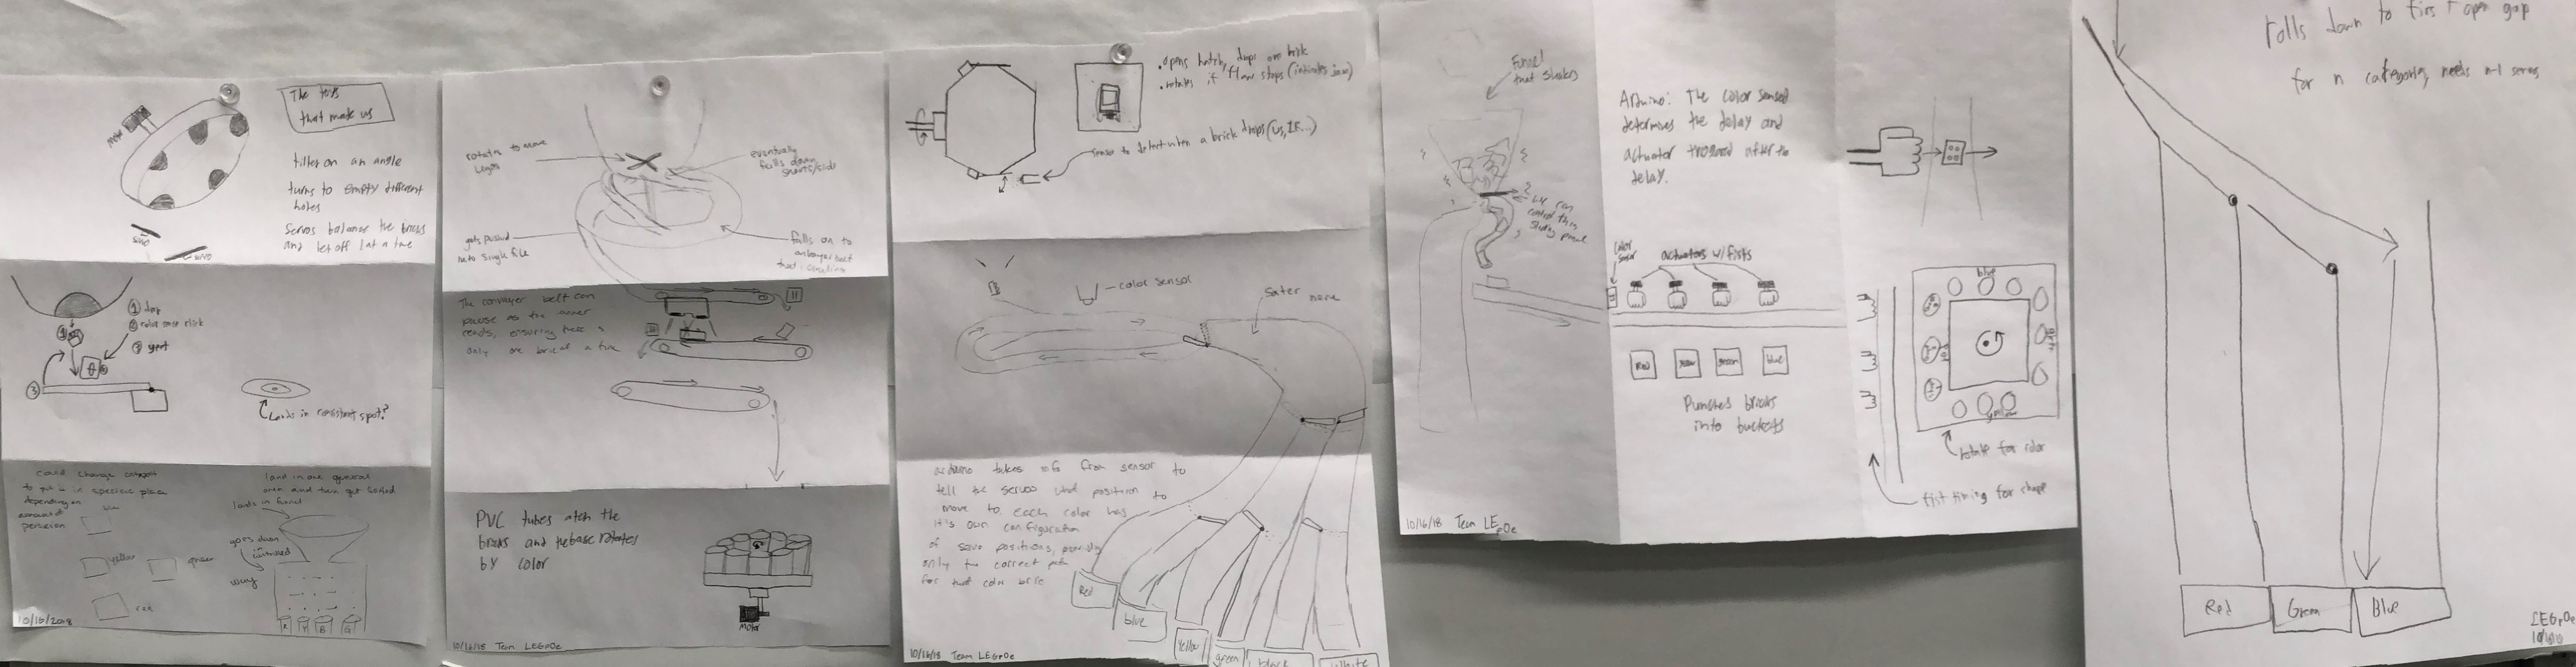 The toys
that made us
Motor
tilter on an angle
turns to empty different
holes
Servos balance the bricks
and let off 1 at a time
servo
servo
① drop
② color sense click
③ yeet
③
Lands in consistent spot?
could change catapult
to put it in specific place
depending on
amount of
percision
blue
yellow
green
red
land in one general
area and then get sorted
lands in funnel
goes down
in
controlled
way
R Y B G
10/16/2018
rotates to move
Legos
eventually
falls down
gets pushed
into single file
falls on to
conveyor belt
The conveyer belt can
pause as the sensor
reads, ensuring there is
only one brick at a time
PVC tubes catch the
bricks and the base rotates
by color
Motor
10/16/18 Team LEGPOe
• opens hatch, drops one brick
• rotates if flow stops (indicates jam)
sensor to detect when a brick drops (US, IR...)
color sensor
arduino takes info from sensor to
tell the servos what position to
move to. each color has
it's own configuration
of servo positions, providing
only the correct path
for that color brick
Red
blue
Yellow
green
black
white
10/16/18 Team LEGPOe
Funnel
that shakes
we can
control this
sliding
Arduino: The color sensed
determines the delay and
actuator triggered after the
delay.
color
sensor
actuators w/fists
Red
green
blue
Punches bricks
into buckets
10/16/18 Team LEGPOe
blue
yellow
rotate for color
fist timing for shape
rolls down to first open gap
for n categories, needs n-1 servos
Red
Green
Blue
LEGPOe